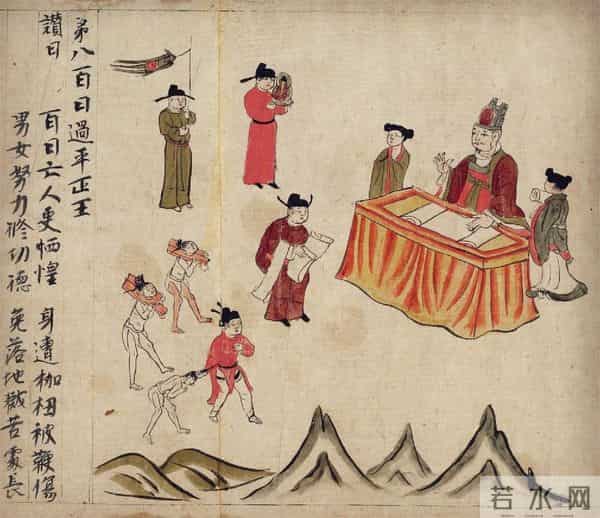 第八百日過平正王
讃曰 百日亡人更恓惶 身遭枷杻被鞭傷
男女努力修功德 免落地獄苦處長
若水网